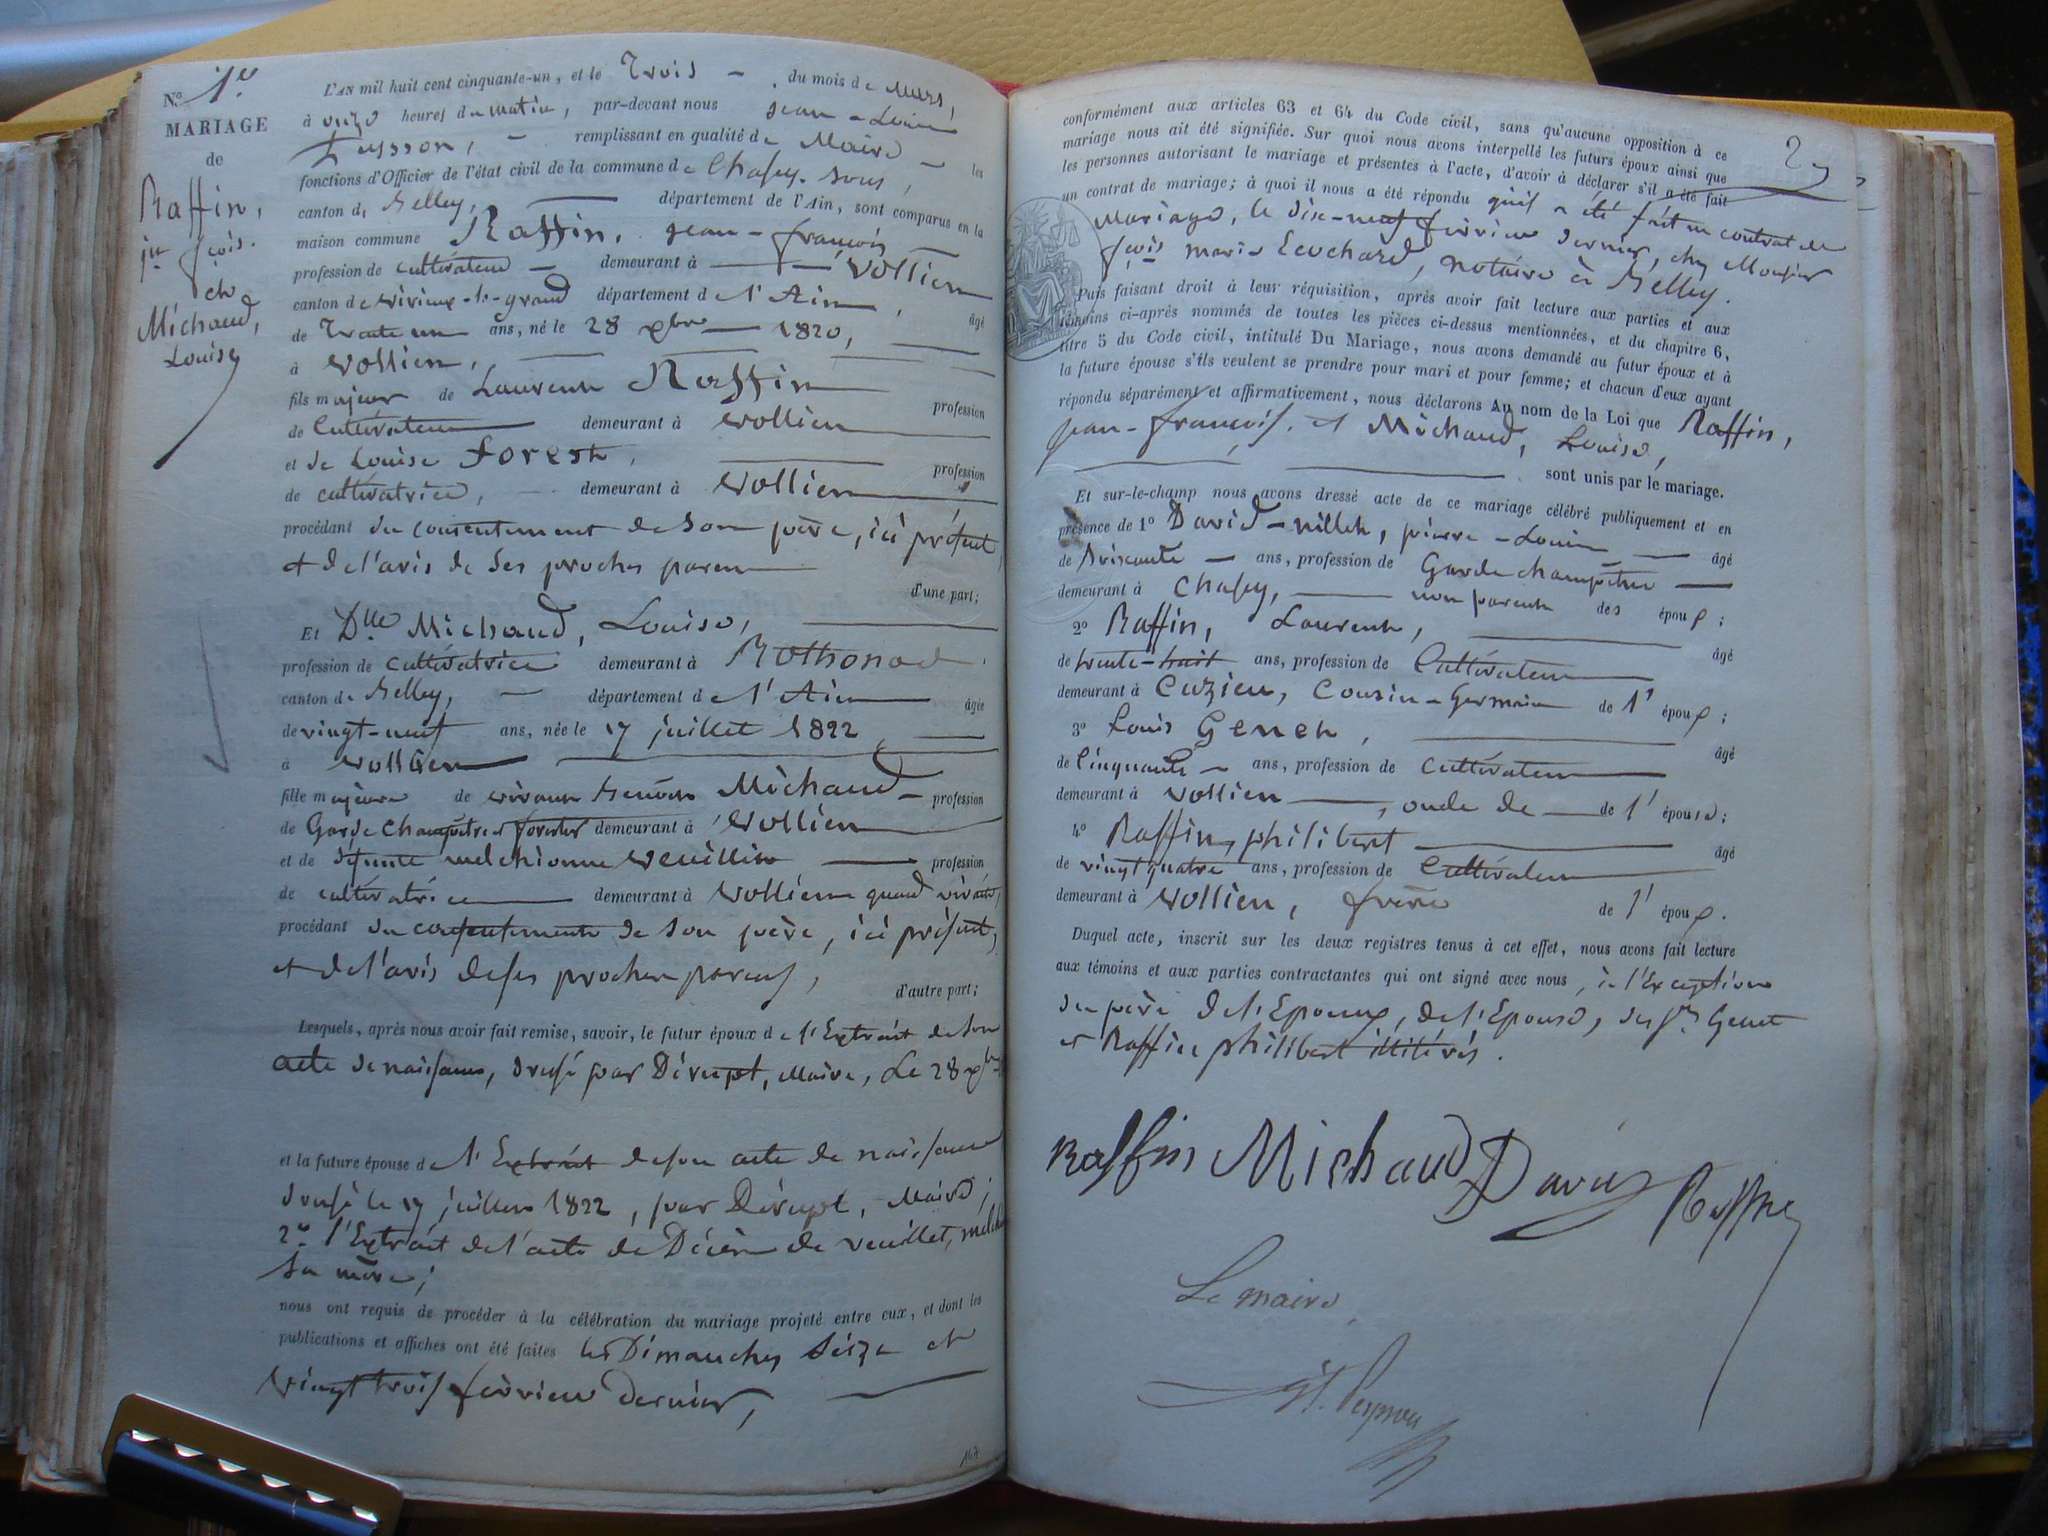 N.º 1er
MARIAGE
de
Raffin,
jn fçois.
et
Michaud,
Louise
L'AN mil huit cent cinquante-un, et le Trois du mois de Mars,
à onze heures du matin, par-devant nous Jean-Louis
remplissant en qualité de Maire les
fonctions d'Officier de l'état civil de la commune de Chasey-
canton de Belley, département de l'Ain, sont comparus en la
maison commune Raffin, Jean-françois
profession de cultivateur demeurant à Vollien
canton de virieux-le-grand département de l'Ain, âgé
de Trente un ans, né le 28 xbre 1820,
à Vollien,
fils majeur de Laurent Raffin profession
de Cultivateur demeurant à Vollien
et de Louise forest, profession
de cultivatrice, demeurant à Vollien
procédant du consentement de son père, ici présent,
et de l'avis de ses proches parens
d'une part;
Et Dlle Michaud, Louise,
profession de cultivatrice demeurant à Rothonod
canton de Belley, département de l'Ain âgée
de vingt-neuf ans, née le 17 juillet 1822
à Vollien
fille majeure de vivant Benoit Michaud profession
de Garde Champêtre et forestier demeurant à Vollien
et de défunte melchionne veuillet profession
de cultivatrice demeurant à Vollien quand vivait,
procédant du consentement de son père, ici présent,
et de l'avis de ses proches parens,
d'autre part;
Lesquels, après nous avoir fait remise, savoir, le futur époux de l'Extrait de son
acte de naissance, dressé par Dérupt, Maire, Le 28 xbre
et la future épouse de l'Extrait de son acte de naissance
dressé le 17 juillet 1822, par Dérupt, Maire;
2º l'Extrait de l'acte de Décès de veuillet,
sa mère;
nous ont requis de procéder à la célébration du mariage projeté entre eux, et dont les
publications et affiches ont été faites les Dimanches seize et
vingt trois février dernier,
2
conformément aux articles 63 et 64 du Code civil, sans qu'aucune opposition à ce
mariage nous ait été signifiée. Sur quoi nous avons interpellé les futurs époux ainsi que
les personnes autorisant le mariage et présentes à l'acte, d'avoir à déclarer s'il a été fait
un contrat de mariage; à quoi il nous a été répondu qu'il a été fait un contrat de
Mariage, le dix-neuf février dernier, chez Monsieur
fçois marie Leuchard, notaire à Belley.
Puis faisant droit à leur réquisition, après avoir fait lecture aux parties et aux
témoins ci-après nommés de toutes les pièces ci-dessus mentionnées, et du chapitre 6,
titre 5 du Code civil, intitulé Du Mariage, nous avons demandé au futur époux et à
la future épouse s'ils veulent se prendre pour mari et pour femme; et chacun d'eux ayant
répondu séparément et affirmativement, nous déclarons Au nom de la Loi que Raffin,
jean-françois, et Michaud, Louise,
sont unis par le mariage.
Et sur-le-champ nous avons dressé acte de ce mariage célébré publiquement et en
présence de 1º David-nillet, pierre-Louis âgé
de soixante ans, profession de Garde champêtre
demeurant à Chasey, non parent des époux;
2º Raffin, Laurent, âgé
de trente-huit ans, profession de Cultivateur
demeurant à Cuzieu, Cousin-Germain de l'époux;
3º Louis Genet, âgé
de Cinquante ans, profession de Cultivateur
demeurant à Vollien, oncle de de l'épouse;
4º Raffin, philibert âgé
de vingt quatre ans, profession de Cultivateur
demeurant à Vollien, frère de l'époux.
Duquel acte, inscrit sur les deux registres tenus à cet effet, nous avons fait lecture
aux témoins et aux parties contractantes qui ont signé avec nous, à l'Exception
du père de l'Epoux, de l'Epouse, des srs Genet
et Raffin philibert illitérés.
Raffin Michaud David Raffin
Le maire